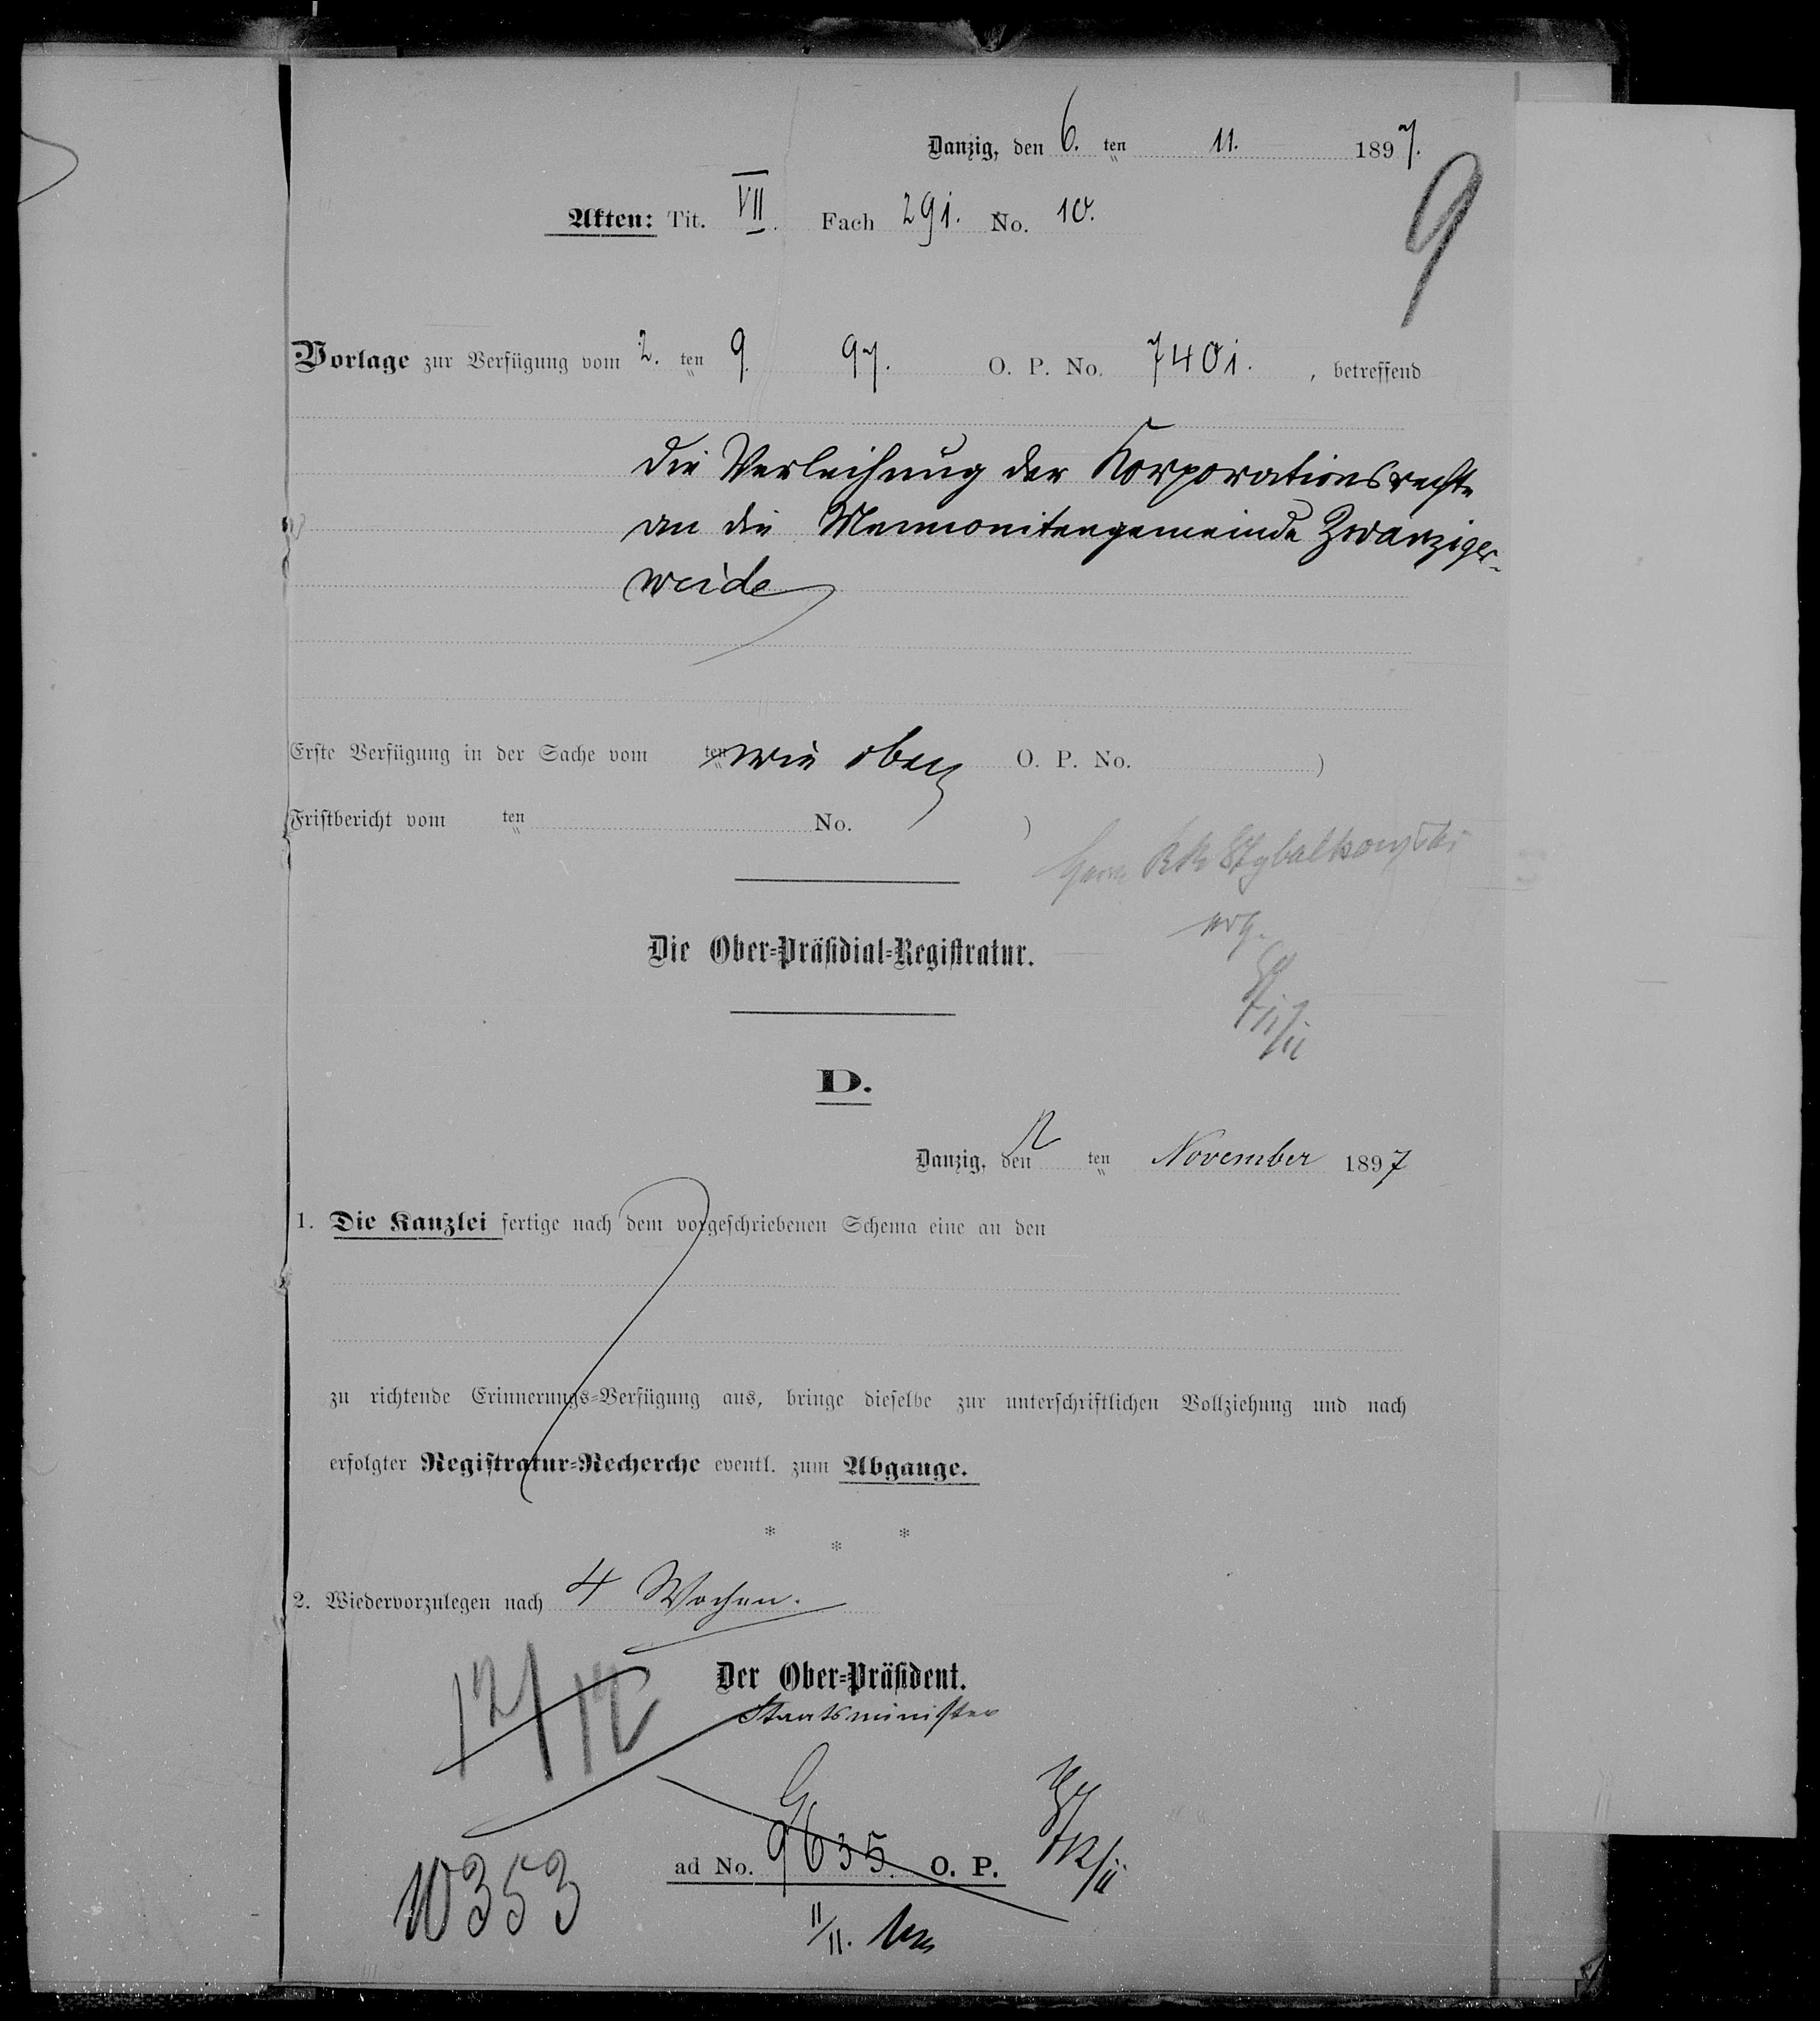 Danzig, den 6. ten 11. 1897.
9
Akten: Tit. VII. Fach 291. No. 10.
Vorlage zur Verfügung vom 2. ten 9. 97. O. P. No. 7401. , betreffend
die Verleihung der Korporationsrechte
an die Mennonitengemeinde Zwanziger-
weide
Erste Verfügung in der Sache vom ten wie oben O. P. No. )
Fristbericht vom ten No. )
Herrn
Die Ober-Präsidial-Registratur.
11/11
D.
Danzig, den ten November 1897
1. Die Kanzlei fertige nach dem vorgeschriebenen Schema eine an den
zu richtende Erinnerungs-Verfügung aus, bringe dieselbe zur unterschriftlichen Vollziehung und nach
erfolgter Registratur-Recherche eventl. zum Abgange.
* * *
2. Wiedervorzulegen nach 4 Wochen.
12/12
Der Ober-Präsident.
Staatsminister
G
ad No. 9635 O. P. 12/11
10353
11/11.